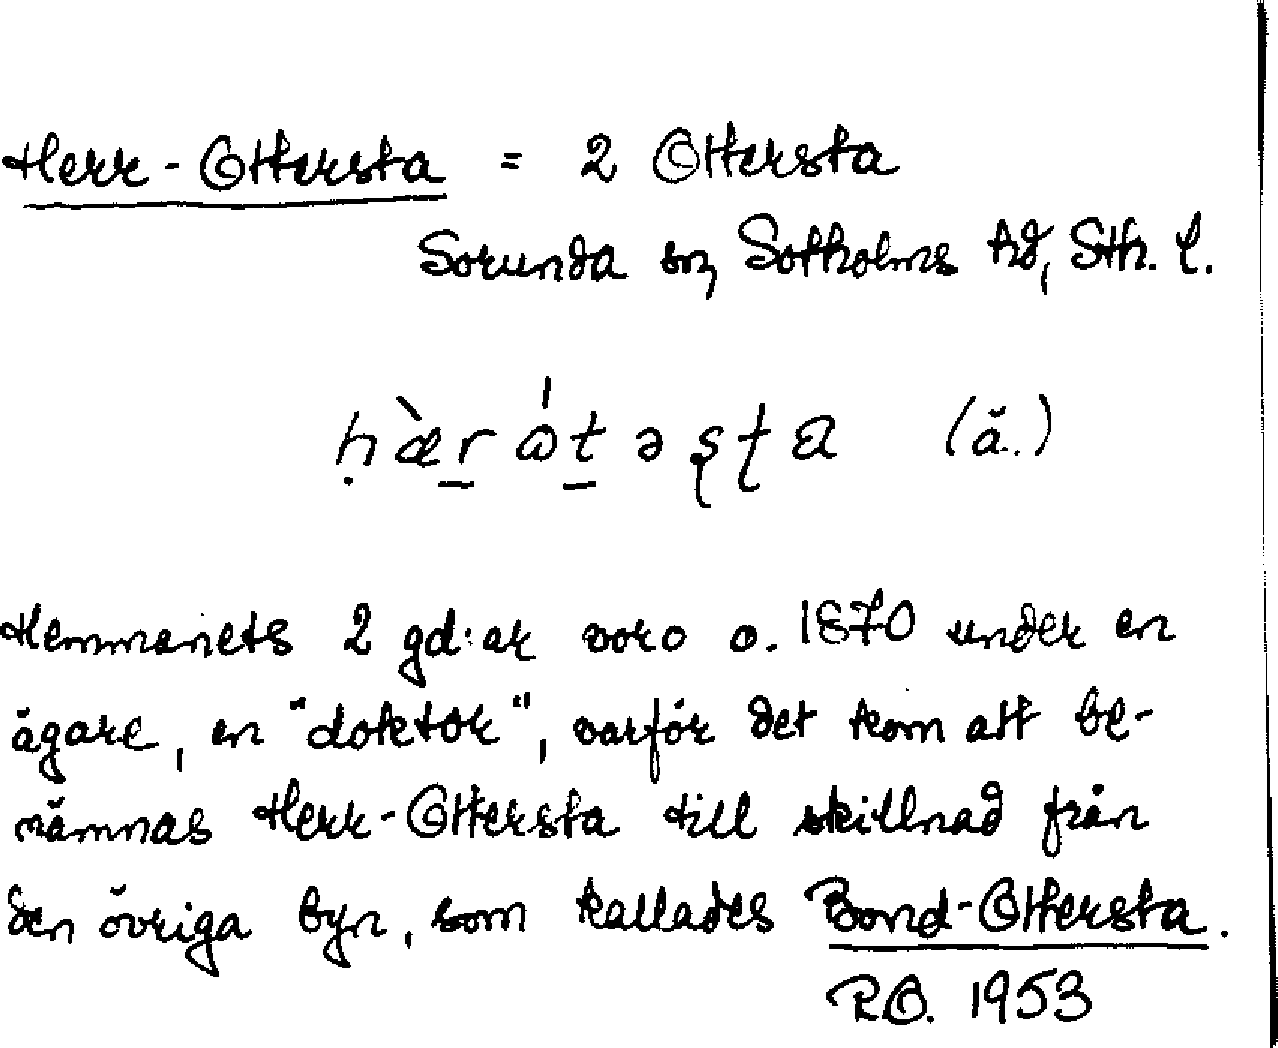 Herr-Ottersta = 2 Ottersta
Sorunda sn, Sotholms hd, Sth. l.
ḥæ̀ṟω̍ṯəʂʈa (ä..)
Hemmanets 2 gd:ar voro o. 1870 under en
ägare, en "doktor", varför det kom att be-
nämnas Herr-Ottersta till skillnad från
den övriga byn, som kallades Bond-Ottersta.
R.O. 1953